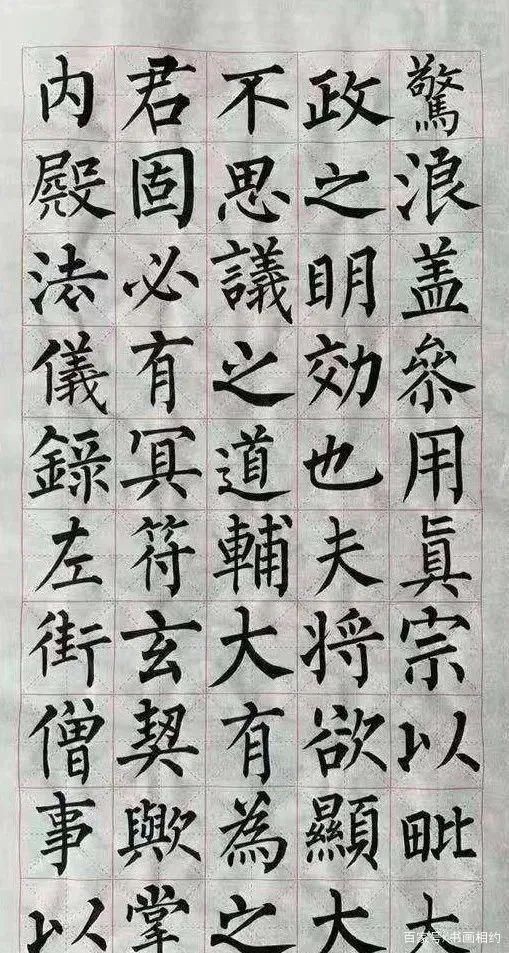 驚浪盖叅用真宗以毗大
政之明効也夫将欲顯大
不思議之道輔大有為之
君固必有冥符玄契歟掌
内殿法儀錄左街僧事以
百家号/书画相约